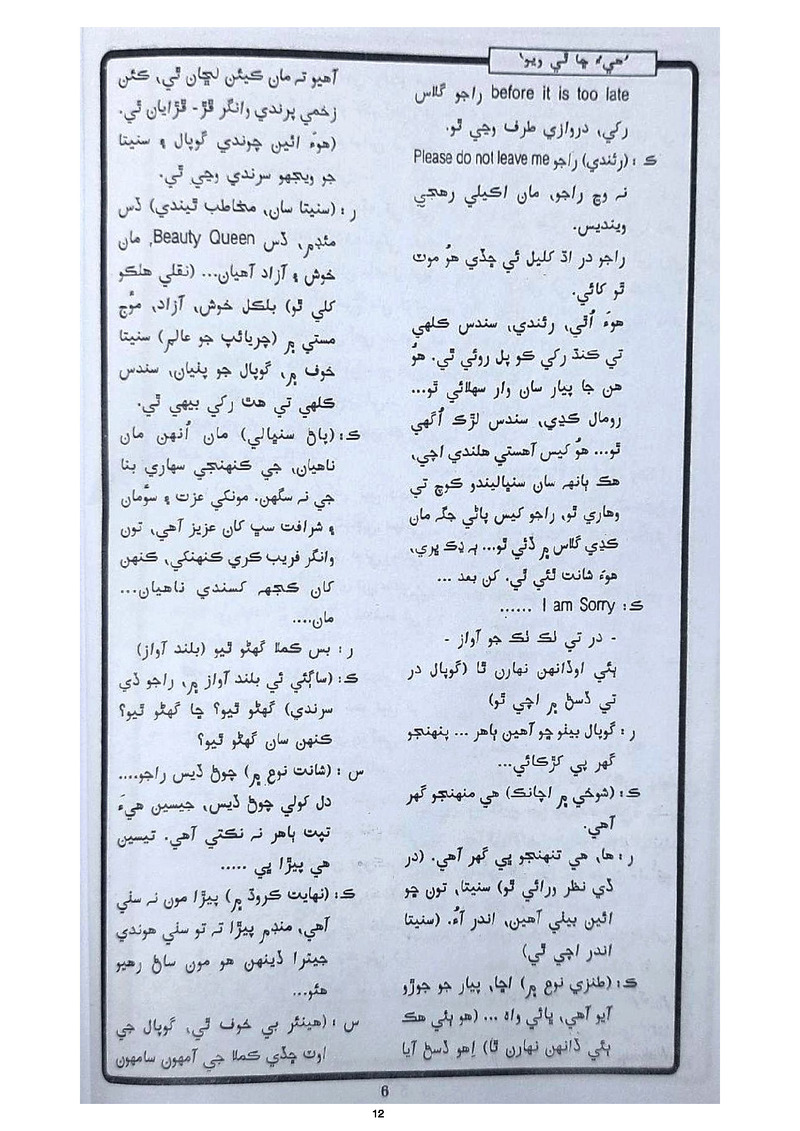 ’هيءُ ڇا ٿي ويو‘
before it is too late راجو گلاس
رکي، دروازي طرف وڃي ٿو.
ڪ : (رئندي) راجو Please do not leave me
نہ وڃ راجو، مان اڪيلي رهجي
وينديس.
راجو در اڌ کليل ئي ڇڏي هُو موٽ
ٿو کائي.
هوءَ اُٿي، رئندي، سندس ڪلهي
تي ڪنڌ رکي ڪو پل روئي ٿي. هُو
هن جا پيار سان وار سهلائي ٿو...
رومال ڪڍي، سندس لڙڪ اُگهي
ٿو... هُو کيس آهستي هلندي اچي،
هڪ ٻانهہ سان سنڀاليندو ڪوچ تي
وهاري ٿو، راجو کيس پاڻي جڳہ مان
ڪڍي گلاس ۾ ڏئي ٿو... ٻہ ڍڪ ڀري،
هوءَ شانت ٿئي ٿي. کن بعد ...
ڪ : I am Sorry ......
- در تي ٺڪ ٺڪ جو آواز -
ٻئي اوڏانهن نهارن ٿا (گوپال در
تي ڏسڻ ۾ اچي ٿو)
ر : گوپال بيٺو ڇو آهين ٻاهر ... پنهنجو
گهر پي کڙڪائي...
ڪ : (شوخي ۾ اچانڪ) هي منهنجو گهر
آهي.
ر : ها، هي تنهنجو ئي گهر آهي. (در
ڏي نظر ورائي ٿو) سنيتا، تون ڇو
ائين بيٺي آهين، اندر آءُ. (سنيتا
اندر اچي ٿي)
ڪ : (طنزي نوع ۾) اڇا، پيار جو جوڙو
آيو آهي، ڀائي واه ... (هو ٻئي هڪ
ٻئي ڏانهن نهارن ٿا) اِهو ڏسڻ آيا
آهيو تہ مان ڪيئن لڇان ٿي، ڪئن
زخمي پرندي وانگر ڦڙ - ڦڙايان ٿي.
(هوءَ ائين چوندي گوپال ۽ سنيتا
جو ويجهو سرندي وڃي ٿي.
ر : (سنيتا سان، مخاطب ٿيندي) ڏس
مئڊم، ڏس Beauty Queen, مان
خوش ۽ آزاد آهيان... (نقلي هلڪو
کلي ٿو) بلڪل خوش، آزاد، موُج
مستي ۾ (چريائپ جو عالم) سنيتا
خوف ۾، گوپال جو پٺيان، سندس
ڪلهي تي هٿ رکي بيهي ٿي.
ڪ : (پاڻ سنڀالي) مان اُنهن مان
ناهيان، جي ڪنهنجي سهاري بنا
جي نہ سگهن. مونکي عزت ۽ سوُمان
۽ شرافت سڀ کان عزيز آهي، تون
وانگر فريب ڪري ڪنهنکي، ڪنهن
کان ڪجهہ کسندي ناهيان...
مان....
ر : بس ڪملا گهڻو ٿيو (بلند آواز)
ڪ : (ساڳئي ئي بلند آواز ۾، راجو ڏي
سرندي) گهڻو ٿيو؟ ڇا گهڻو ٿيو؟
ڪنهن سان گهڻو ٿيو؟
س : (شانت نوع ۾) چوڻ ڏيس راجو....
دل کولي چوڻ ڏيس، جيسين هيءَ
تپت ٻاهر نہ نڪتي آهي. تيسين
هي پيڙا پي .....
ڪ : (نهايت ڪروڌ ۾) پيڙا مون نہ سٺي
آهي، منڊم پيڙا تہ تو سٺي هوندي
جيترا ڏينهن هو مون ساڻ رهيو
هئو...
س : (هينئر بي خوف ٿي، گوپال جي
اوٽ ڇڏي ڪملا جي آمهون سامهون
6
12